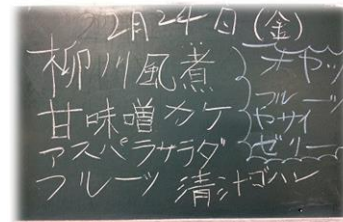 2月24日(金)
柳川風煮
甘味噌カケ
アスパラサラダ
フルーツ 青汁ゴハン
オヤツ
フルーツ
ヤサイ
ゼリー